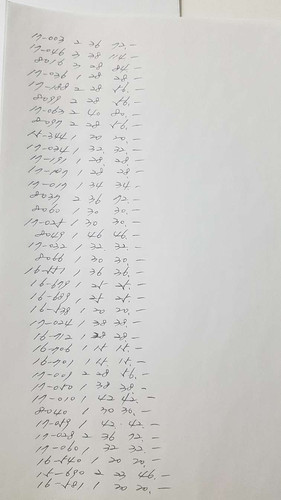 17-003 2 36 72.-
17-046 3 28 84.-
8016 3 28 84.-
17-036 1 28 28.-
17-188 2 28 56.-
8099 2 28 56.-
17-063 2 40 80.-
8097 2 28 56.-
15-344 1 20 20.-
17-034 1 32. 32.-
17-191 1 28. 28.-
17-107 1 28 28.-
17-017 1 34 34.-
8037 2 36 72.-
8060 1 30 30.-
17-025 1 30 30.-
8049 1 46 46.-
17-032 1 32. 32.-
8066 1 30 30.-
16-551 1 36 36.-
16-679 1 25 25.-
16-689 1 25 25.-
16-538 1 20 20.-
17-024 1 38 38.-
16-712 1 28 28.-
16-706 1 15 15.-
16-701 1 15 15.-
17-009 2 28 56.-
17-050 1 38 38.-
17-010 1 42 42.-
8040 1 30 30.-
17-059 1 42 42.-
17-028 2 36 72.-
17-060 1 32 32.-
16-540 1 20 20.-
15-690 2 23 46.-
16-581 1 20 20.-